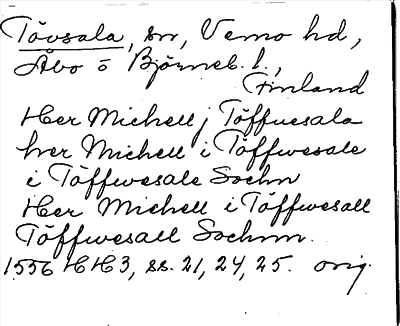 Tövsala, sn, Vemo hd,
Åbo o Björneb. l.,
Finland
Her Michell j Töffuesala
her Michell i Töffwesale
i Töffwesale Sochn
Her Michell i Töffwesall
Töffwesall Sochnn.
1556 HH3, ss. 21, 24, 25. orig.